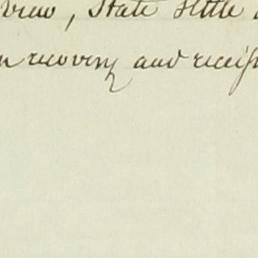 view, State settle
recovery and receip